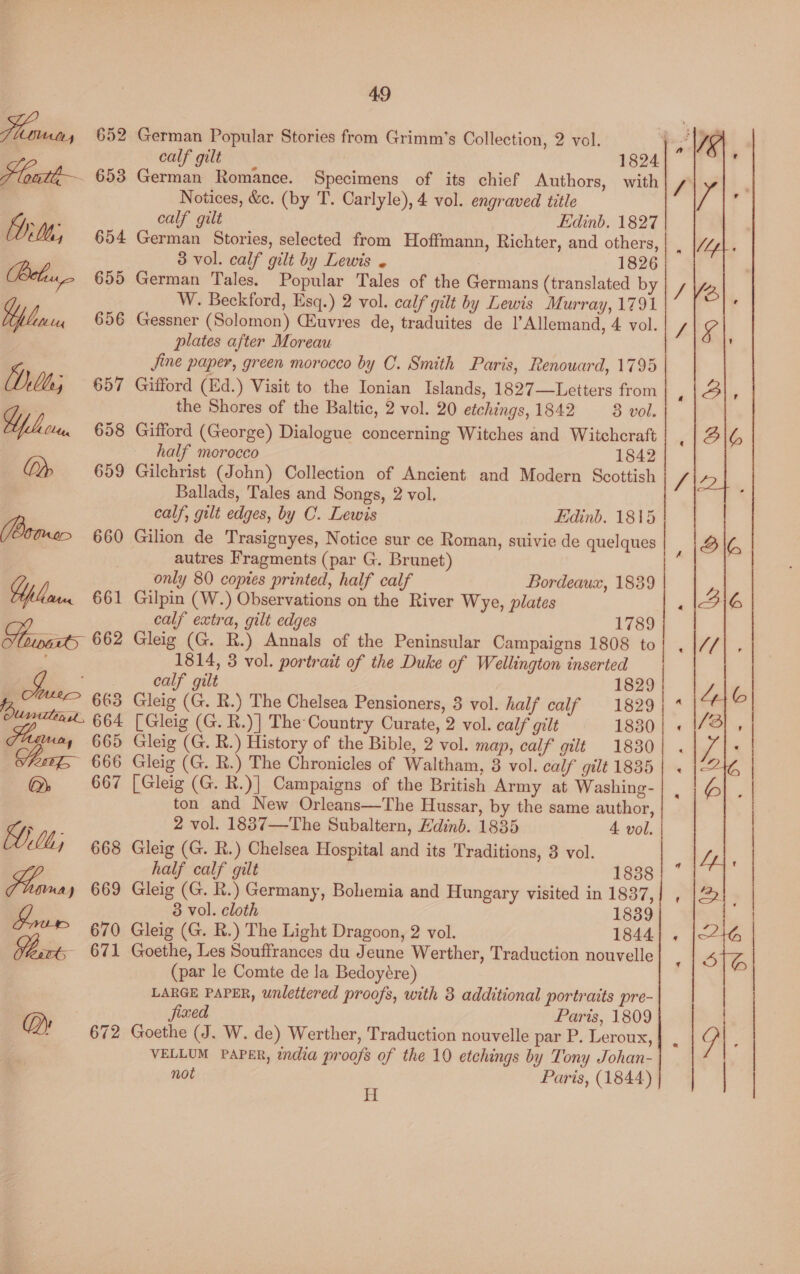 49
Thomas 652 German Popular Stories from Grimm's Collection, 2 vol.
calf gilt 1824 " 18 "
Heath 653 German Romance. Specimens of its chief Authors, with
Notices, &c. (by T. Carlyle), 4 vol. engraved title
calf gilt Edinb. 1827
Willis 654 German Stories, selected from Hoffmann, Richter, and others,
3 vol. calf gilt by Lewis 1826
655 German Tales. Popular Tales of the Germans (translated by
W. Beckford, Esq.) 2 vol. calf gilt by Lewis Murray, 1791
Upham 656 Gessner (Solomon) Œuvres de, traduites de l'Allemand, 4 vol. 1 8 "
plates after Moreau
fine paper, green morocco by C. Smith Paris, Renouard, 1795
Willis 657 Gifford (Ed.) Visit to the Ionian Islands, 1827—Letters from " 3 "
the Shores of the Baltic, 2 vol. 20 etchings, 1842 3 vol.
Upham 658 Gifford (George) Dialogue concerning Witches and Witchcraft " 3 6
half morocco 1842
Do 659 Gilchrist (John) Collection of Ancient and Modern Scottish 1 2 "
Ballads, Tales and Songs, 2 vol.
calf, gilt edges, by C. Lewis Edinb. 1815
Boone 660 Gilion de Trasignyes, Notice sur ce Roman, suivie de quelques " 3 6
autres Fragments (par G. Brunet)
only 80 copies printed, half calf Bordeaux, 1839
Upham 661 Gilpin (W.) Observations on the River Wye, plates " 3 6
calf extra, gilt edges 1789
662 Gleig (G. R.) Annals of the Peninsular Campaigns 1808 to " 11 "
1814, 3 vol. portrait of the Duke of Wellington inserted
calf gilt 1829
663 Gleig (G. R.) The Chelsea Pensioners, 3 vol. half calf 1829 " 4 6
664 [Gleig (G. R.)] The Country Curate, 2 vol. calf gilt 1830 " 13 "
Thomas 665 Gleig (G. R.) History of the Bible, 2 vol. map, calf gilt 1830 " 7 "
666 Gleig (G. R.) The Chronicles of Waltham, 3 vol. calf gilt 1835 " 2 6
Do 667 [Gleig (G. R.)] Campaigns of the British Army at Washing- " 6 "
ton and New Orleans—The Hussar, by the same author,
2 vol. 1837—The Subaltern, Edinb. 1835 4 vol.
Willis 668 Gleig (G. R.) Chelsea Hospital and its Traditions, 3 vol.
half calf gilt 1838 " 4 "
Thomas 669 Gleig (G. R.) Germany, Bohemia and Hungary visited in 1837, " 3 "
3 vol. cloth 1839
670 Gleig (G. R.) The Light Dragoon, 2 vol. 1844 " 2 6
671 Goethe, Les Souffrances du Jeune Werther, Traduction nouvelle " 5 6
(par le Comte de la Bedoyére)
LARGE PAPER, unlettered proofs, with 3 additional portraits pre-
fixed Paris, 1809
Do 672 Goethe (J. W. de) Werther, Traduction nouvelle par P. Leroux, " 9 "
VELLUM PAPER, india proofs of the 10 etchings by Tony Johan-
not Paris, (1844)
H